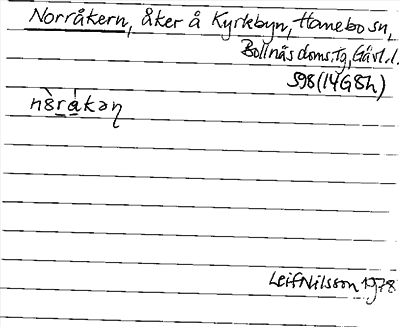 Norråkern, åker å Kyrkbyn, Hanebo sn,
Bollnäs doms. tg, Gävl. l.
S98 (14G8h)
nȯ̀rákəɳ
Leif Nilsson 1978